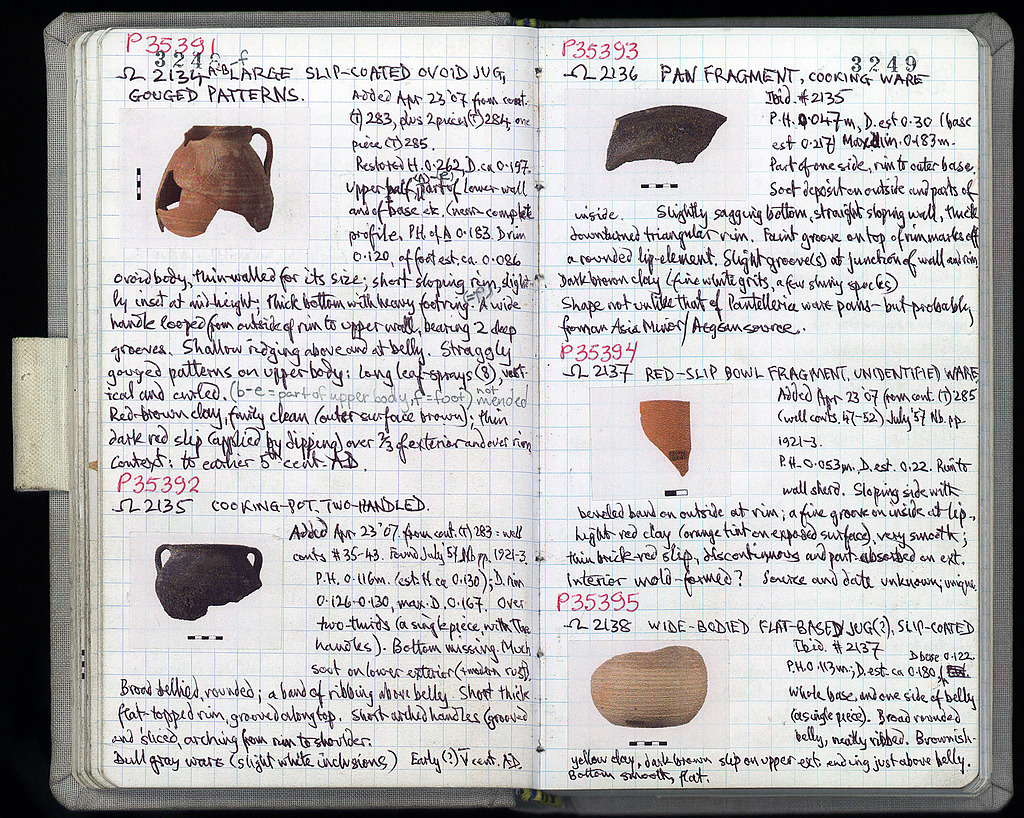 P35391
3248
Ω 2134 A-B LARGE SLIP-COATED OVOID JUG,
GOUGED PATTERNS.
Added Apr 23 '07 from cont.
(T) 283, plus 2 pieces (T) 284, one
piece (T) 285.
Restored H. 0.262, D. ca 0.197.
Upper half, part of lower wall
and of base etc. (near-complete
profile. P.H. of A 0.183. D rim
0.120, of foot est. ca. 0.086
ovoid body, thin-walled for its size; short sloping rim, slight-
ly inset at mid-height; thick bottom with heavy footring. A wide
handle looped from outside of rim to upper wall, bearing 2 deep
grooves. Shallow ridging above and at belly. Straggly
gouged patterns on upper body: long leaf-sprays (8), vert-
ical and curled. (b-e = part of upper body, f = foot) not mended
Red-brown clay, fairly clean (outer surface brown); thin
dark red slip (applied by dipping) over 2/3 of exterior and over rim
Context: to earlier 5th cent. A.D.
P35392
Ω 2135 COOKING-POT, TWO-HANDLED.
Added Apr. 23 '07. from cont. (T) 283 = well
conts #35-43. Found July '57. Nb pp. 1921-3.
P.H. 0.116m. (est. H ca 0.130); D. rim
0.126-0.130, max. D. 0.167. Over
two-thirds (a single piece, with the
handles). Bottom missing. Much
soot on lower exterior (+ modern rust).
Broad bellied, rounded; a band of ribbing above belly. Short thick
flat-topped rim, grooved along top. Short arched handles (grooved
and sliced, arching from rim to shoulder.
Dull gray ware (slight white inclusions) Early (?) V cent. A.D.
P35393
3249
Ω 2136 PAN FRAGMENT, COOKING WARE
Ibid. #2135
P.H. 0.047m, D. est 0.30 (base
est 0.217) Max dim. 0.183m.
Part of one side, rim to outer base.
Soot deposit on outside and parts of
inside. Slightly sagging bottom, straight sloping wall, thick
downturned triangular rim. Faint groove on top of rim marks off
a rounded lip-element. Slight groove(s) at junction of wall and rim.
Dark brown clay (fine white grits, a few shiny specks)
Shape not unlike that of Pantelleria ware pans - but probably
from an Asia Minor/Aegean source.
P35394
Ω 2137 RED-SLIP BOWL FRAGMENT, UNIDENTIFIED WARE
Added Apr 23 '07 from cont. (T) 285
(well conts. 47-52) July '57 Nb. pp.
1921-3.
P.H. 0.053m, D. est. 0.22. Rim to
wall sherd. Sloping side with
beveled band on outside at rim; a fine groove on inside at lip.,
Light red clay (orange tint on exposed surface), very smooth;
thin brick-red slip, discontinuous and part-absorbed on ext.
Interior mold-formed? Source and date unknown; unique
P35395
Ω 2138 WIDE-BODIED FLAT-BASED JUG(?), SLIP-COATED
Ibid. #2137
D base 0.122.
P.H. 0.113m; D. est. ca 0.180
Whole base, and one side of belly
(a single piece). Broad rounded
belly, neatly ribbed. Brownish-
yellow clay, dark brown slip on upper ext. ending just above belly.
Bottom smooth, flat.